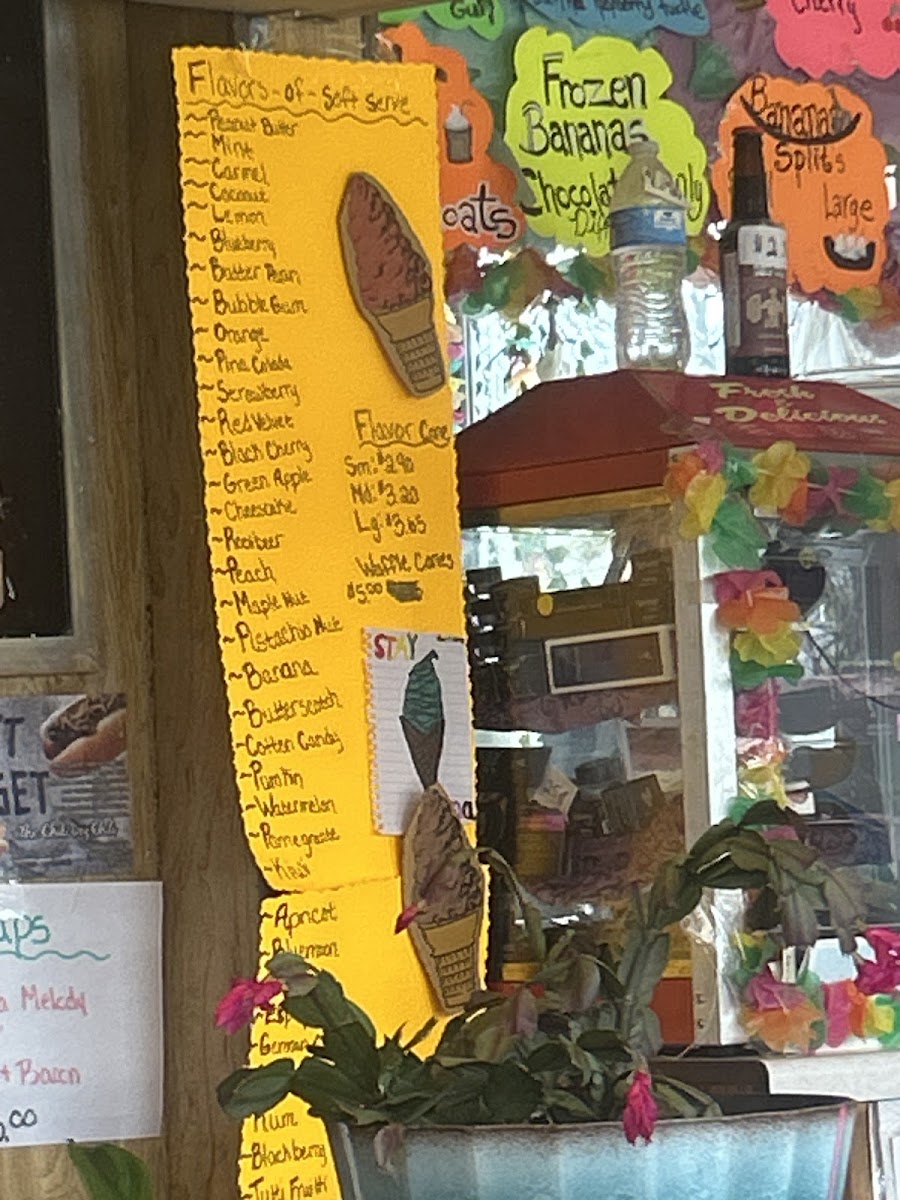 Flavors-of-Soft Serve
~Peanut Butter
~Mint
~Carmel
~Coconut
~Lemon
~Blueberry
~Butter Pecan
~Bubble Gum
~Orange
~Pina Colada
~Strawberry
~Red Velvet
~Black Cherry
~Green Apple
~Cheesecake
~Rootbeer
~Peach
~Maple Nut
~Pistachio Nut
~Banana
~Butterscotch
~Cotten Candy
~Watermelon
~Kiwi
~Apricot
~German
Rum
~Blackberry
~Tutti Frutti
Flavor Cone
Sm: $2.90
Md: $3.20
Lg: $3.65
Waffle Cones
$5.00
STAY
Gum
Cherry
Frozen
Bananas
Chocolat
Dip
oats
Banana
Splits
Large
Fresh
Delicious
GET
aps
a Melody
Bacon
.00